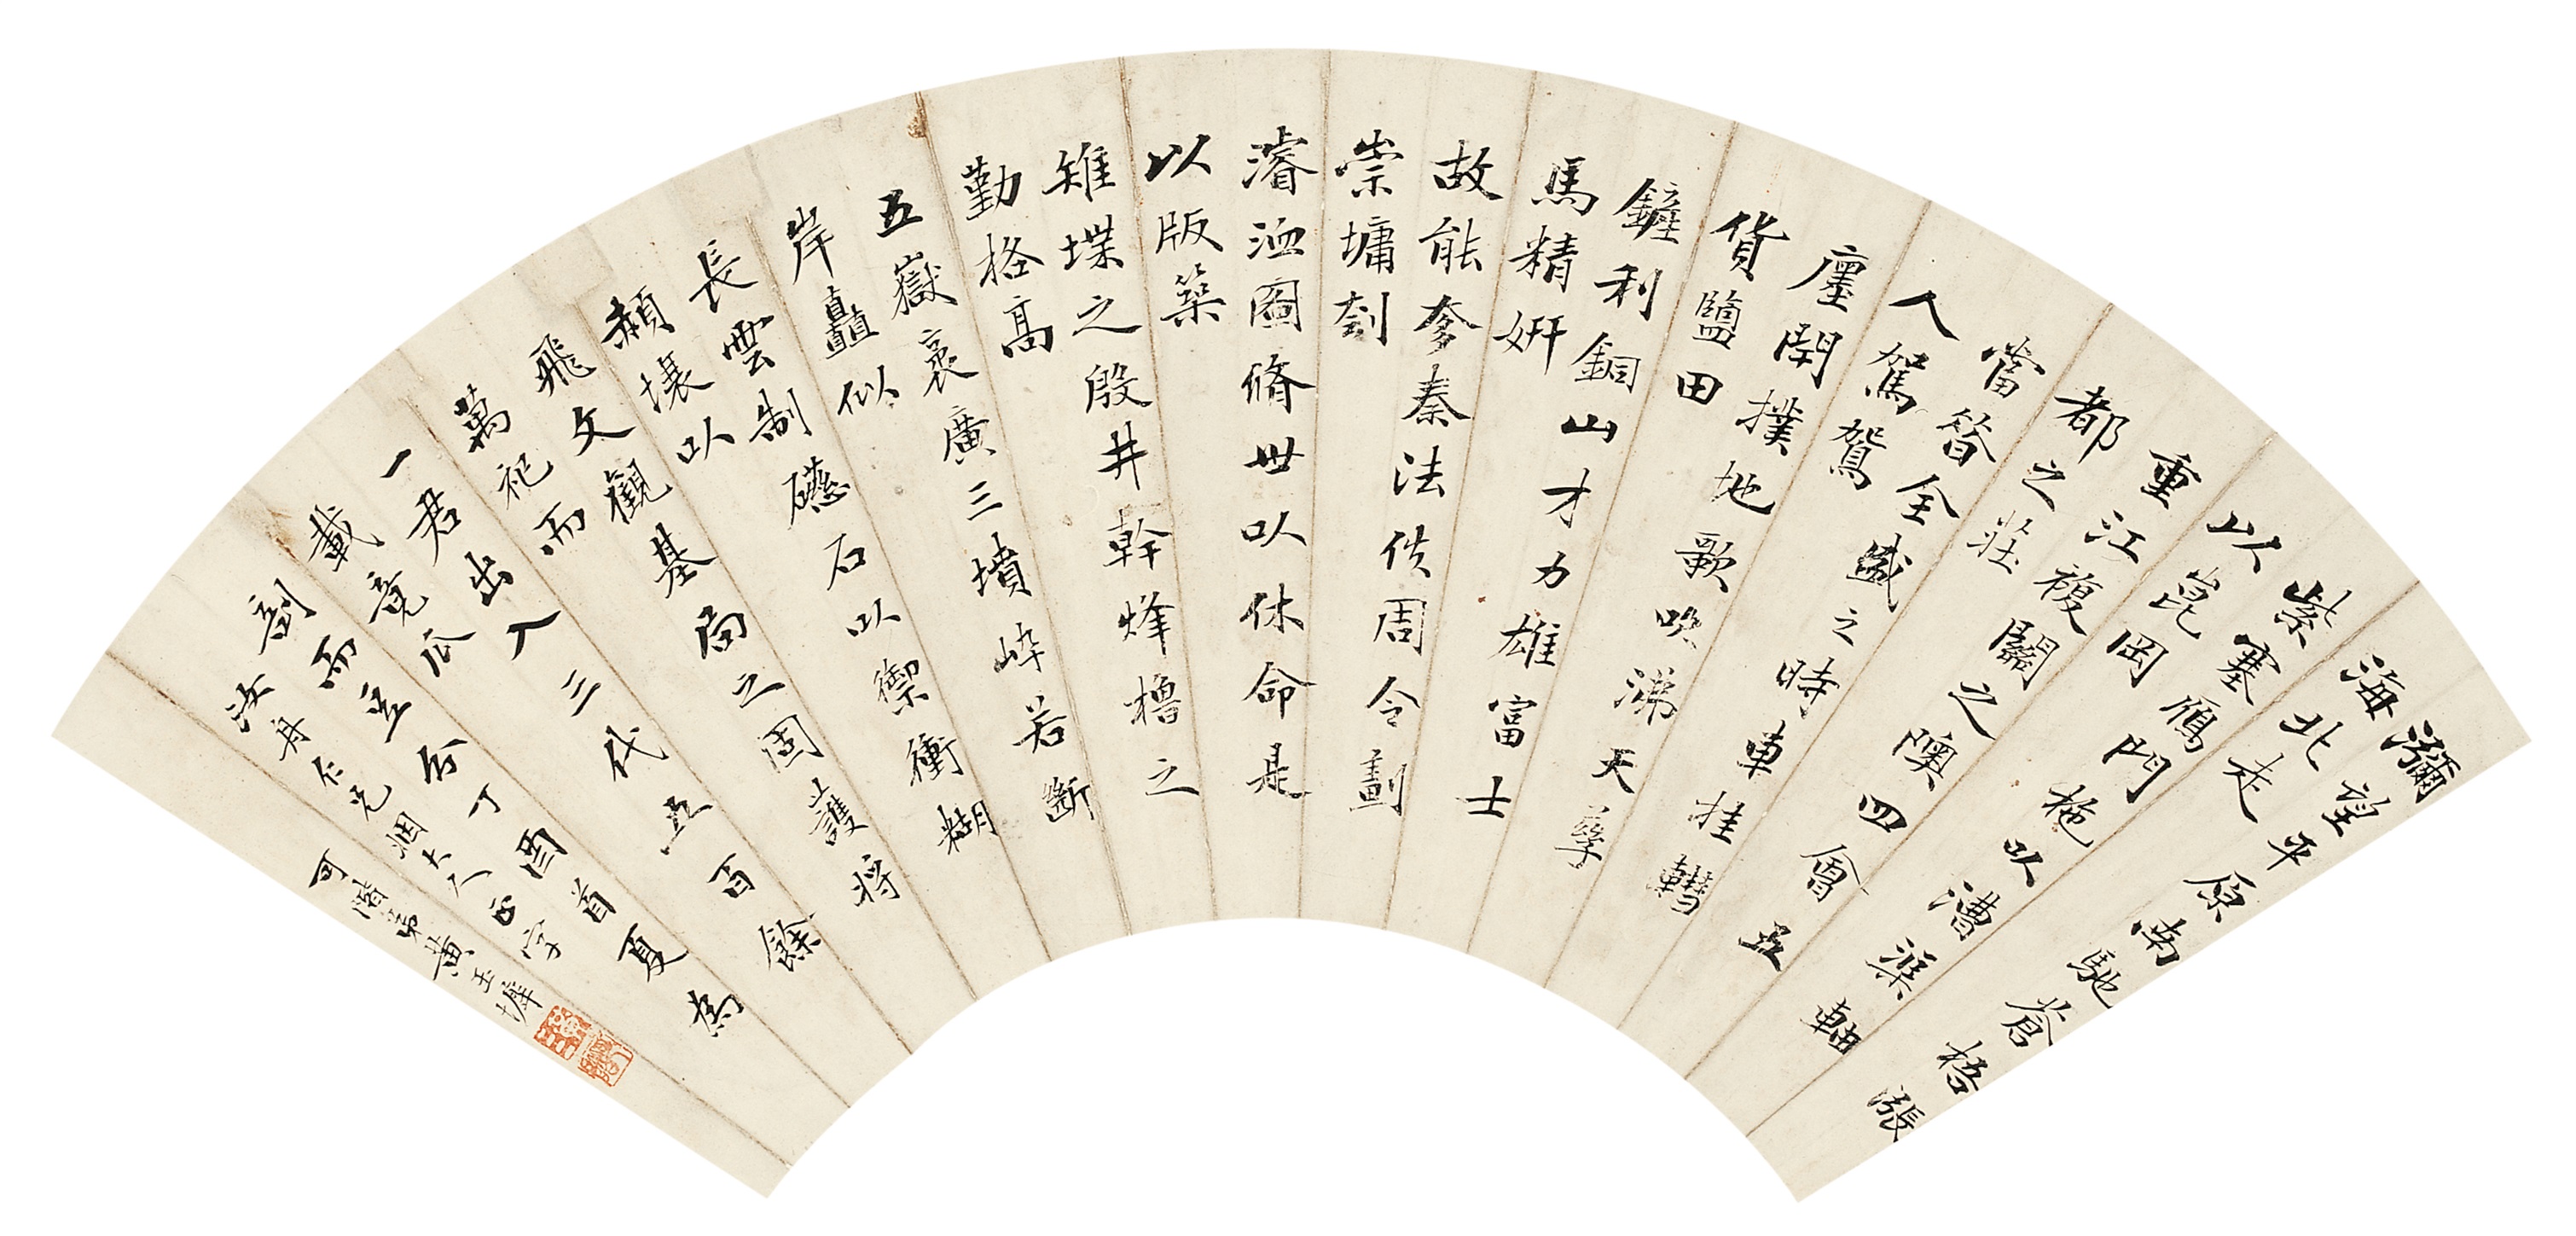 瀰望平原南馳蒼梧漲
海北走
紫塞鴈門柂以漕渠軸
以崑岡
重江複關之隩四會五
都之莊
當昔全盛之時車挂轊
人駕
廛閈撲地歌吹沸天孳
貨鹽田
鏟利銅山才力雄富士
馬精妍
故能奓秦法佚周令劃
崇墉刳
濬洫圖脩世以休命是
以版築
雉堞之殷井幹烽櫓之
勤格高
五嶽袤廣三墳崪若斷
岸矗似
長雲制礠石以禦衝糊
赬壤以
飛文觀基扃之固護將
萬祀而
一君出入三代五百餘
載竟瓜
剖而豆分丁酉首夏為
汝舟仁兄姻大人正字
可階弟黃玉墀